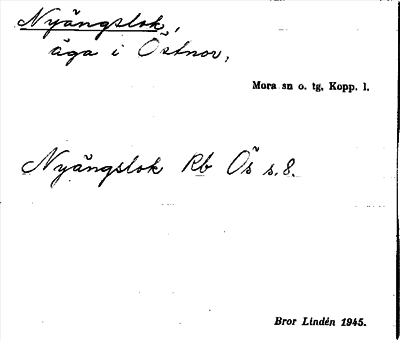 Nyängslok,
äga i Östnor,
Mora sn o. tg, Kopp. l.
Nyängslok Rb Ös s. 8.
Bror Lindén 1945.